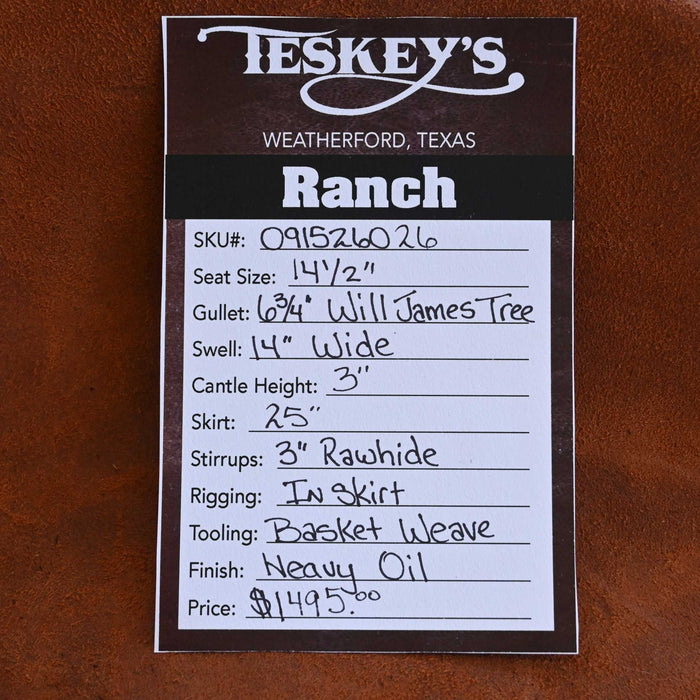 TESKEY'S
WEATHERFORD, TEXAS
Ranch
SKU#: 091526026
Seat Size: 14 1/2"
Gullet: 6 3/4" Will James Tree
Swell: 14" Wide
Cantle Height: 3"
Skirt: 25"
Stirrups: 3" Rawhide
Rigging: In Skirt
Tooling: Basket Weave
Finish: Heavy Oil
Price: $1495.00